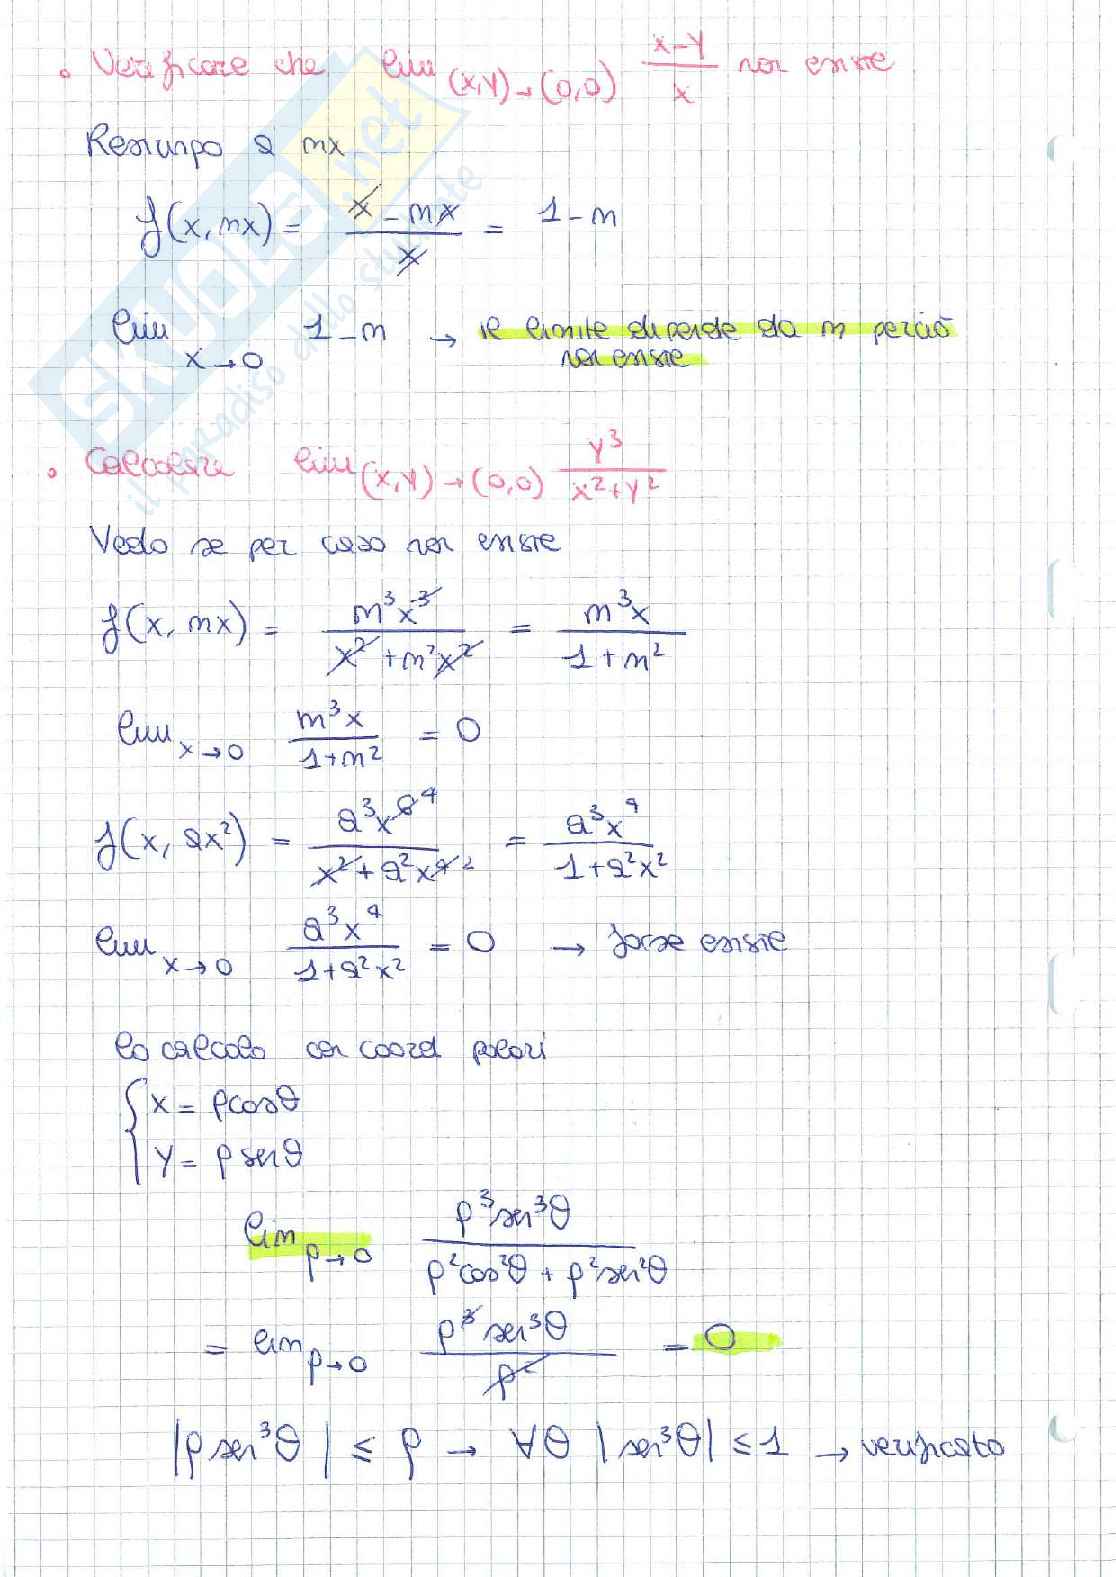 • Verificare che lim (x,y)→(0,0) x-y/x non esiste
Restringo a mx
f(x, mx) = x - mx / x = 1 - m
lim x→0 1 - m → il limite dipende da m perciò
non esiste
• Calcolare lim (x,y)→(0,0) y³/x²+y²
Vedo se per caso non esiste
f(x, mx) = m³x³ / x²+m²x² = m³x / 1+m²
lim x→0 m³x / 1+m² = 0
f(x, ax²) = a³x⁶ ⁴ / x²+a²x⁴ ² = a³x⁴ / 1+a²x²
lim x→0 a³x⁴ / 1+a²x² = 0 → forse esiste
lo calcolo con coord polari
{ x = ρcosθ
y = ρ senθ
lim ρ→0 ρ³sen³θ / ρ²cos²θ + ρ²sen²θ
= lim ρ→0 ρ³ sen³θ / ρ² = 0
|ρ sen³θ| ≤ ρ → ∀θ |sen³θ| ≤ 1 → verificato
SKUOLA.net
il paradiso dello studente